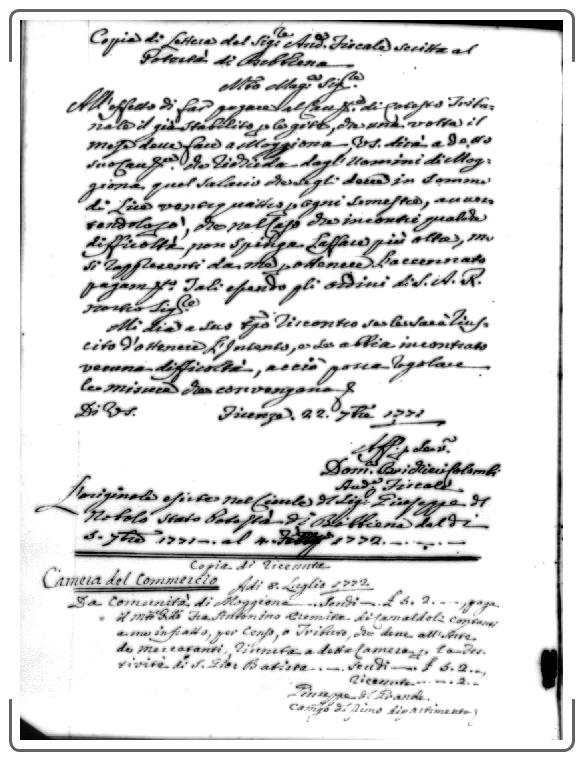 Copia di Lettera del Sig.re Aud.e Fiscale scritta al
Potestà di Bibbiena
Mto Mag.o Sig.re
All'effetto di far pagare al Can.re di cotesto Tribu-
nale il già stabilito, che una volta il
mese deve fare a Moggiona VS. dirà a detto
suo Can.re che richieda dagli Uomini di Mog-
giona quel Salario che segli deve in somma
di Lire ventiquattro, ogni semestre, avver-
tendolo, che nel caso che incontri qualche
difficoltà, non spinga l'affare più oltre, ma
si rappresenti da me, ottenere l'accennato
pagam.to Tali essendo gli ordini di S. A. R.
nostro Sig.re
Mi dia a suo tpo riscontro se le sarà rius-
cito d'ottenere l'Intento, o se abbia incontrato
veruna difficoltà, acciò possa regolare
le misure che convengano
Di VS. Firenze. 22. 7bre 1771
Aff. p Ser.e
Dom.o Brichieri Colombi
Aud.e Fiscale
L'originale esiste nel Civile del Sig. Giuseppe del
Nobolo stato Potestà di Bibbiena dal dì
5. 7bre 1771. al 4. 1772.
Copia di Ricevute
Camera del Commercio Adi 8. Luglio 1772
Da Comunità di Moggiona Scudi £ 5. 2 paga
il Fra Antonino Eremita di Camaldoli contanti
a me infratto, per Censo, o Tributo, che deve all'Arte
de mercatanti, riunita a detta Camera, la Fes-
tività di S. Gio: Batista Scudi £ 5. 2
Ricevute 2
Giuseppe del Grande
Camgo del primo dipartimento